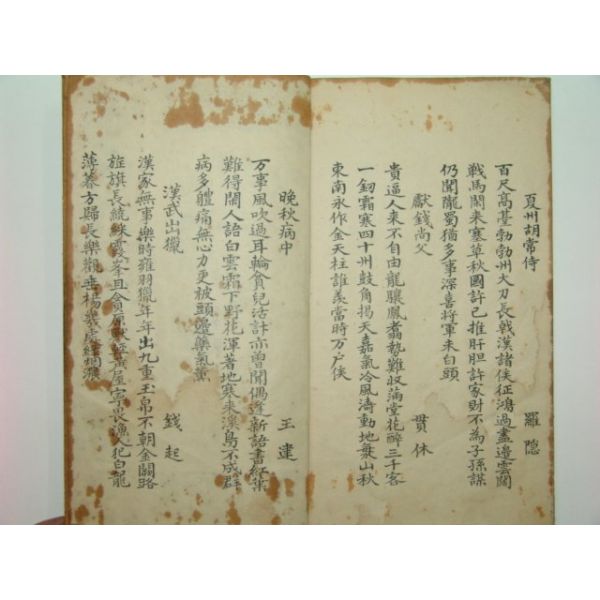 夏州胡常侍 羅隱
百尺高臺勃勃州大刀長戟漢諸侯征鴻過盡邊雲闊
戰馬閑來塞草秋國計已推肝胆許家財不為子孫謀
仍聞隴蜀猶多事深喜將軍未白頭
獻錢尚父 貫休
貴逼人來不自由龍驤鳳翥勢難收滿堂花醉三千客
一釰霜寒四十州鼓角揭天嘉氣冷風濤動地海山秋
東南永作金天柱誰羨當時万戶侯
晚秋病中 王建
万事風吹過耳輪貧兒活計亦曾聞偶逢新語書紅葉
難得閑人語白雲霜下野花渾著地寒來溪鳥不成群
病多體痛無心力更被頭邊藥氣薰
漢武出獵 錢起
漢家無事樂時雍羽獵年年出九重玉帛不朝金闕路
旌旗長繞彩霞峯且貪原獸輕黃屋寧畏漁人犯白龍
薄暮方歸長樂觀垂楊幾處綠烟濃